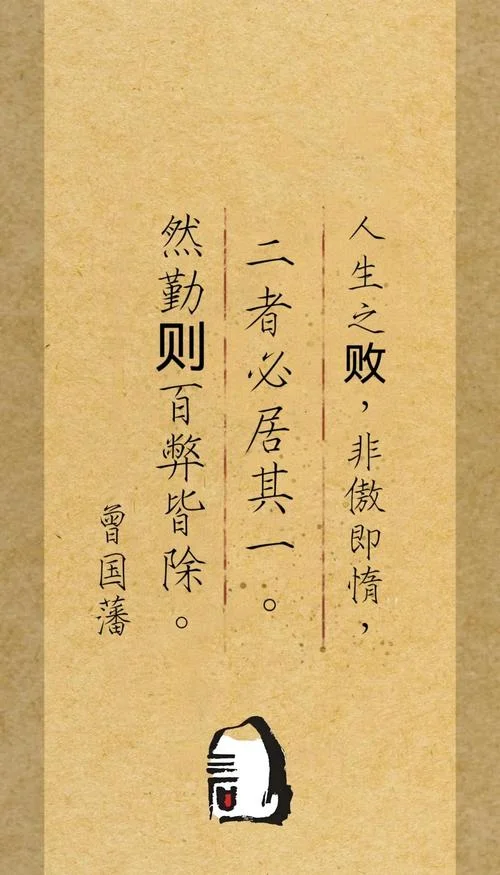 人生之败，非傲即惰，
二者必居其一。
然勤则百弊皆除。
曾国藩